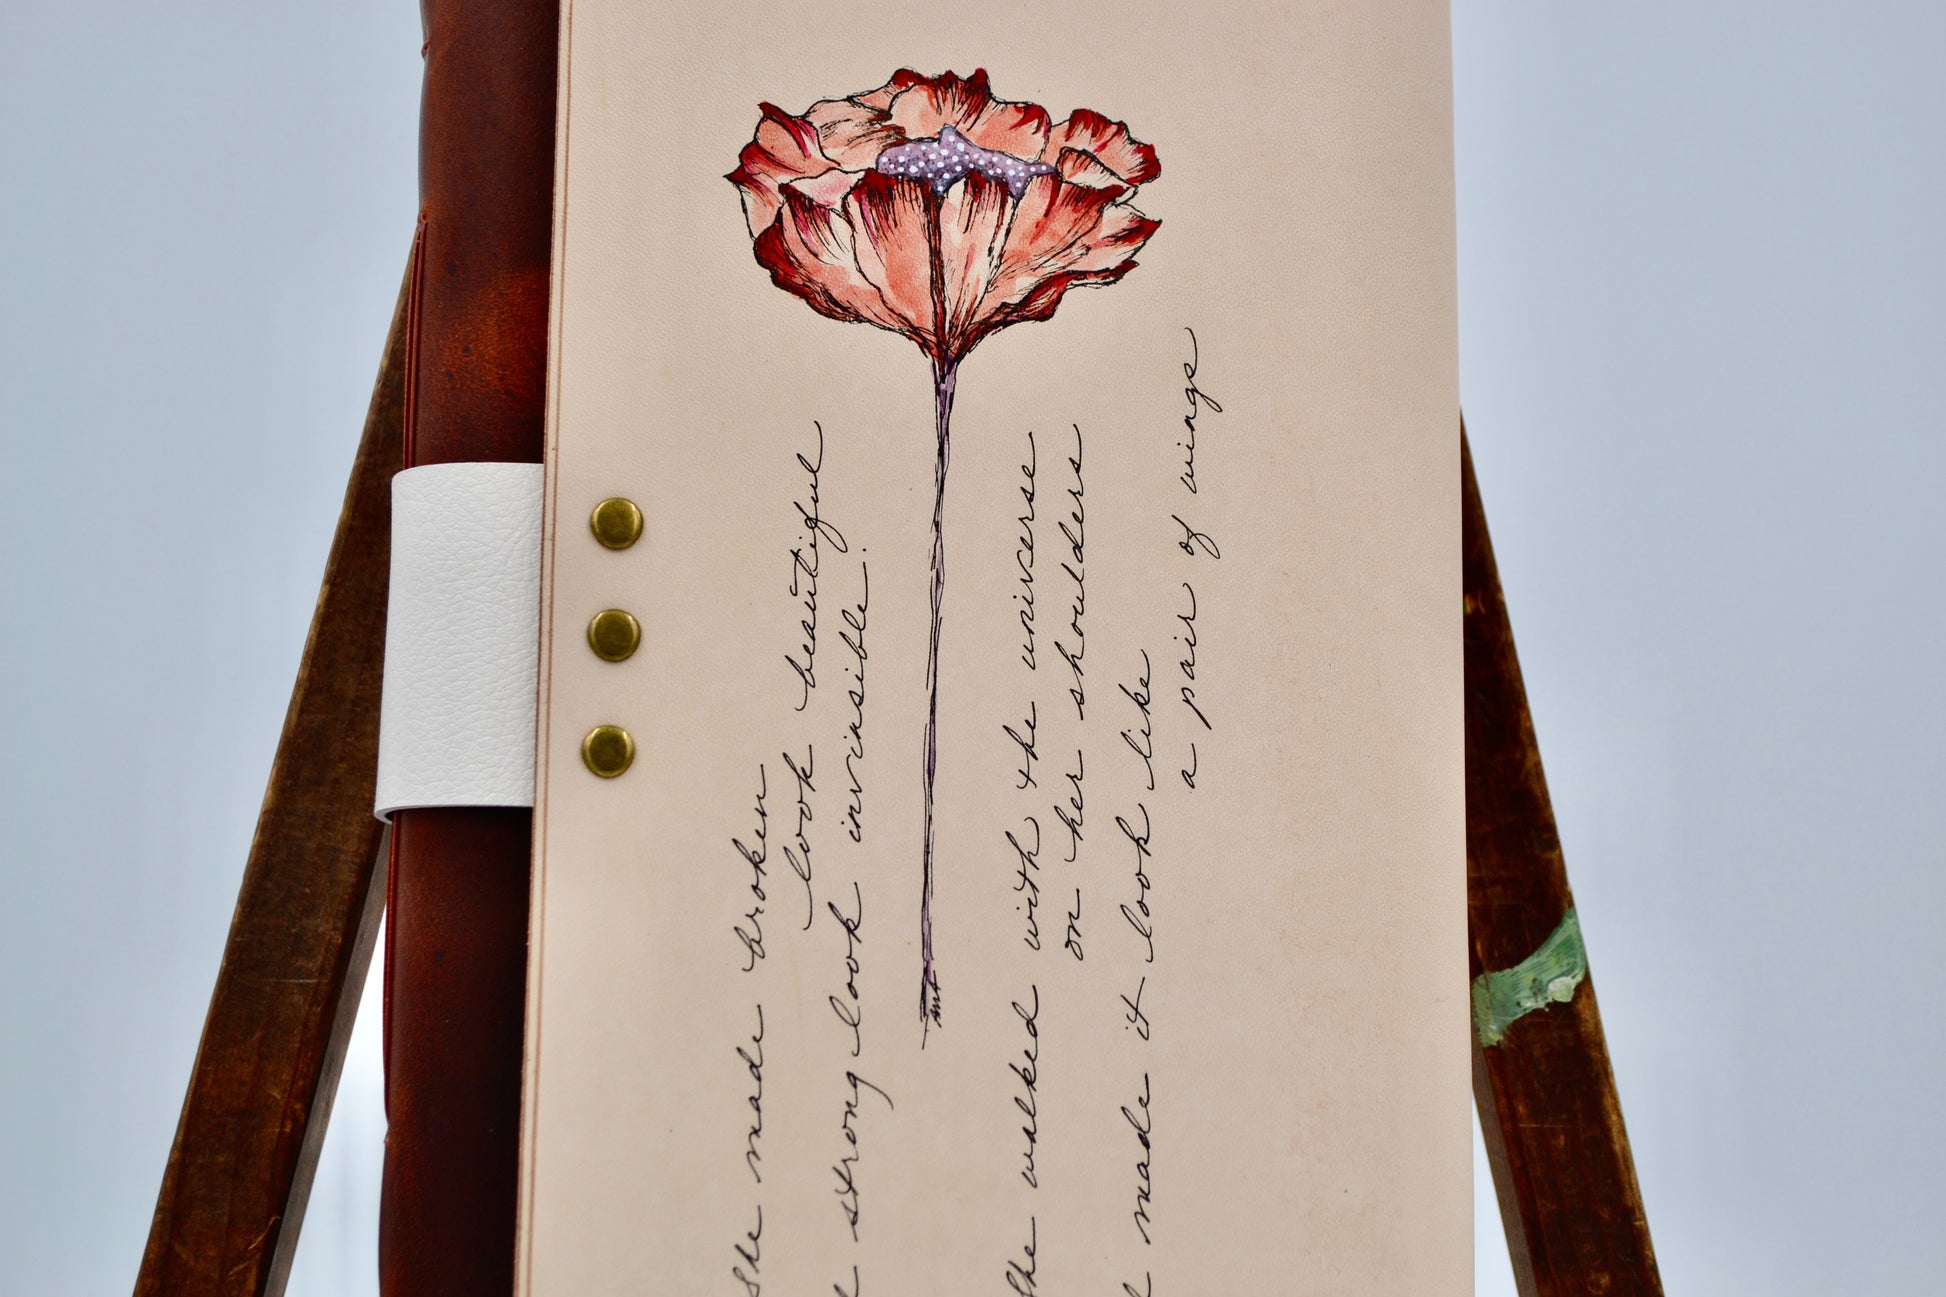 She made broken
look beautiful
strong look invinsible.
She walked with the universe
on her shoulders
made it look like
a pair of wings